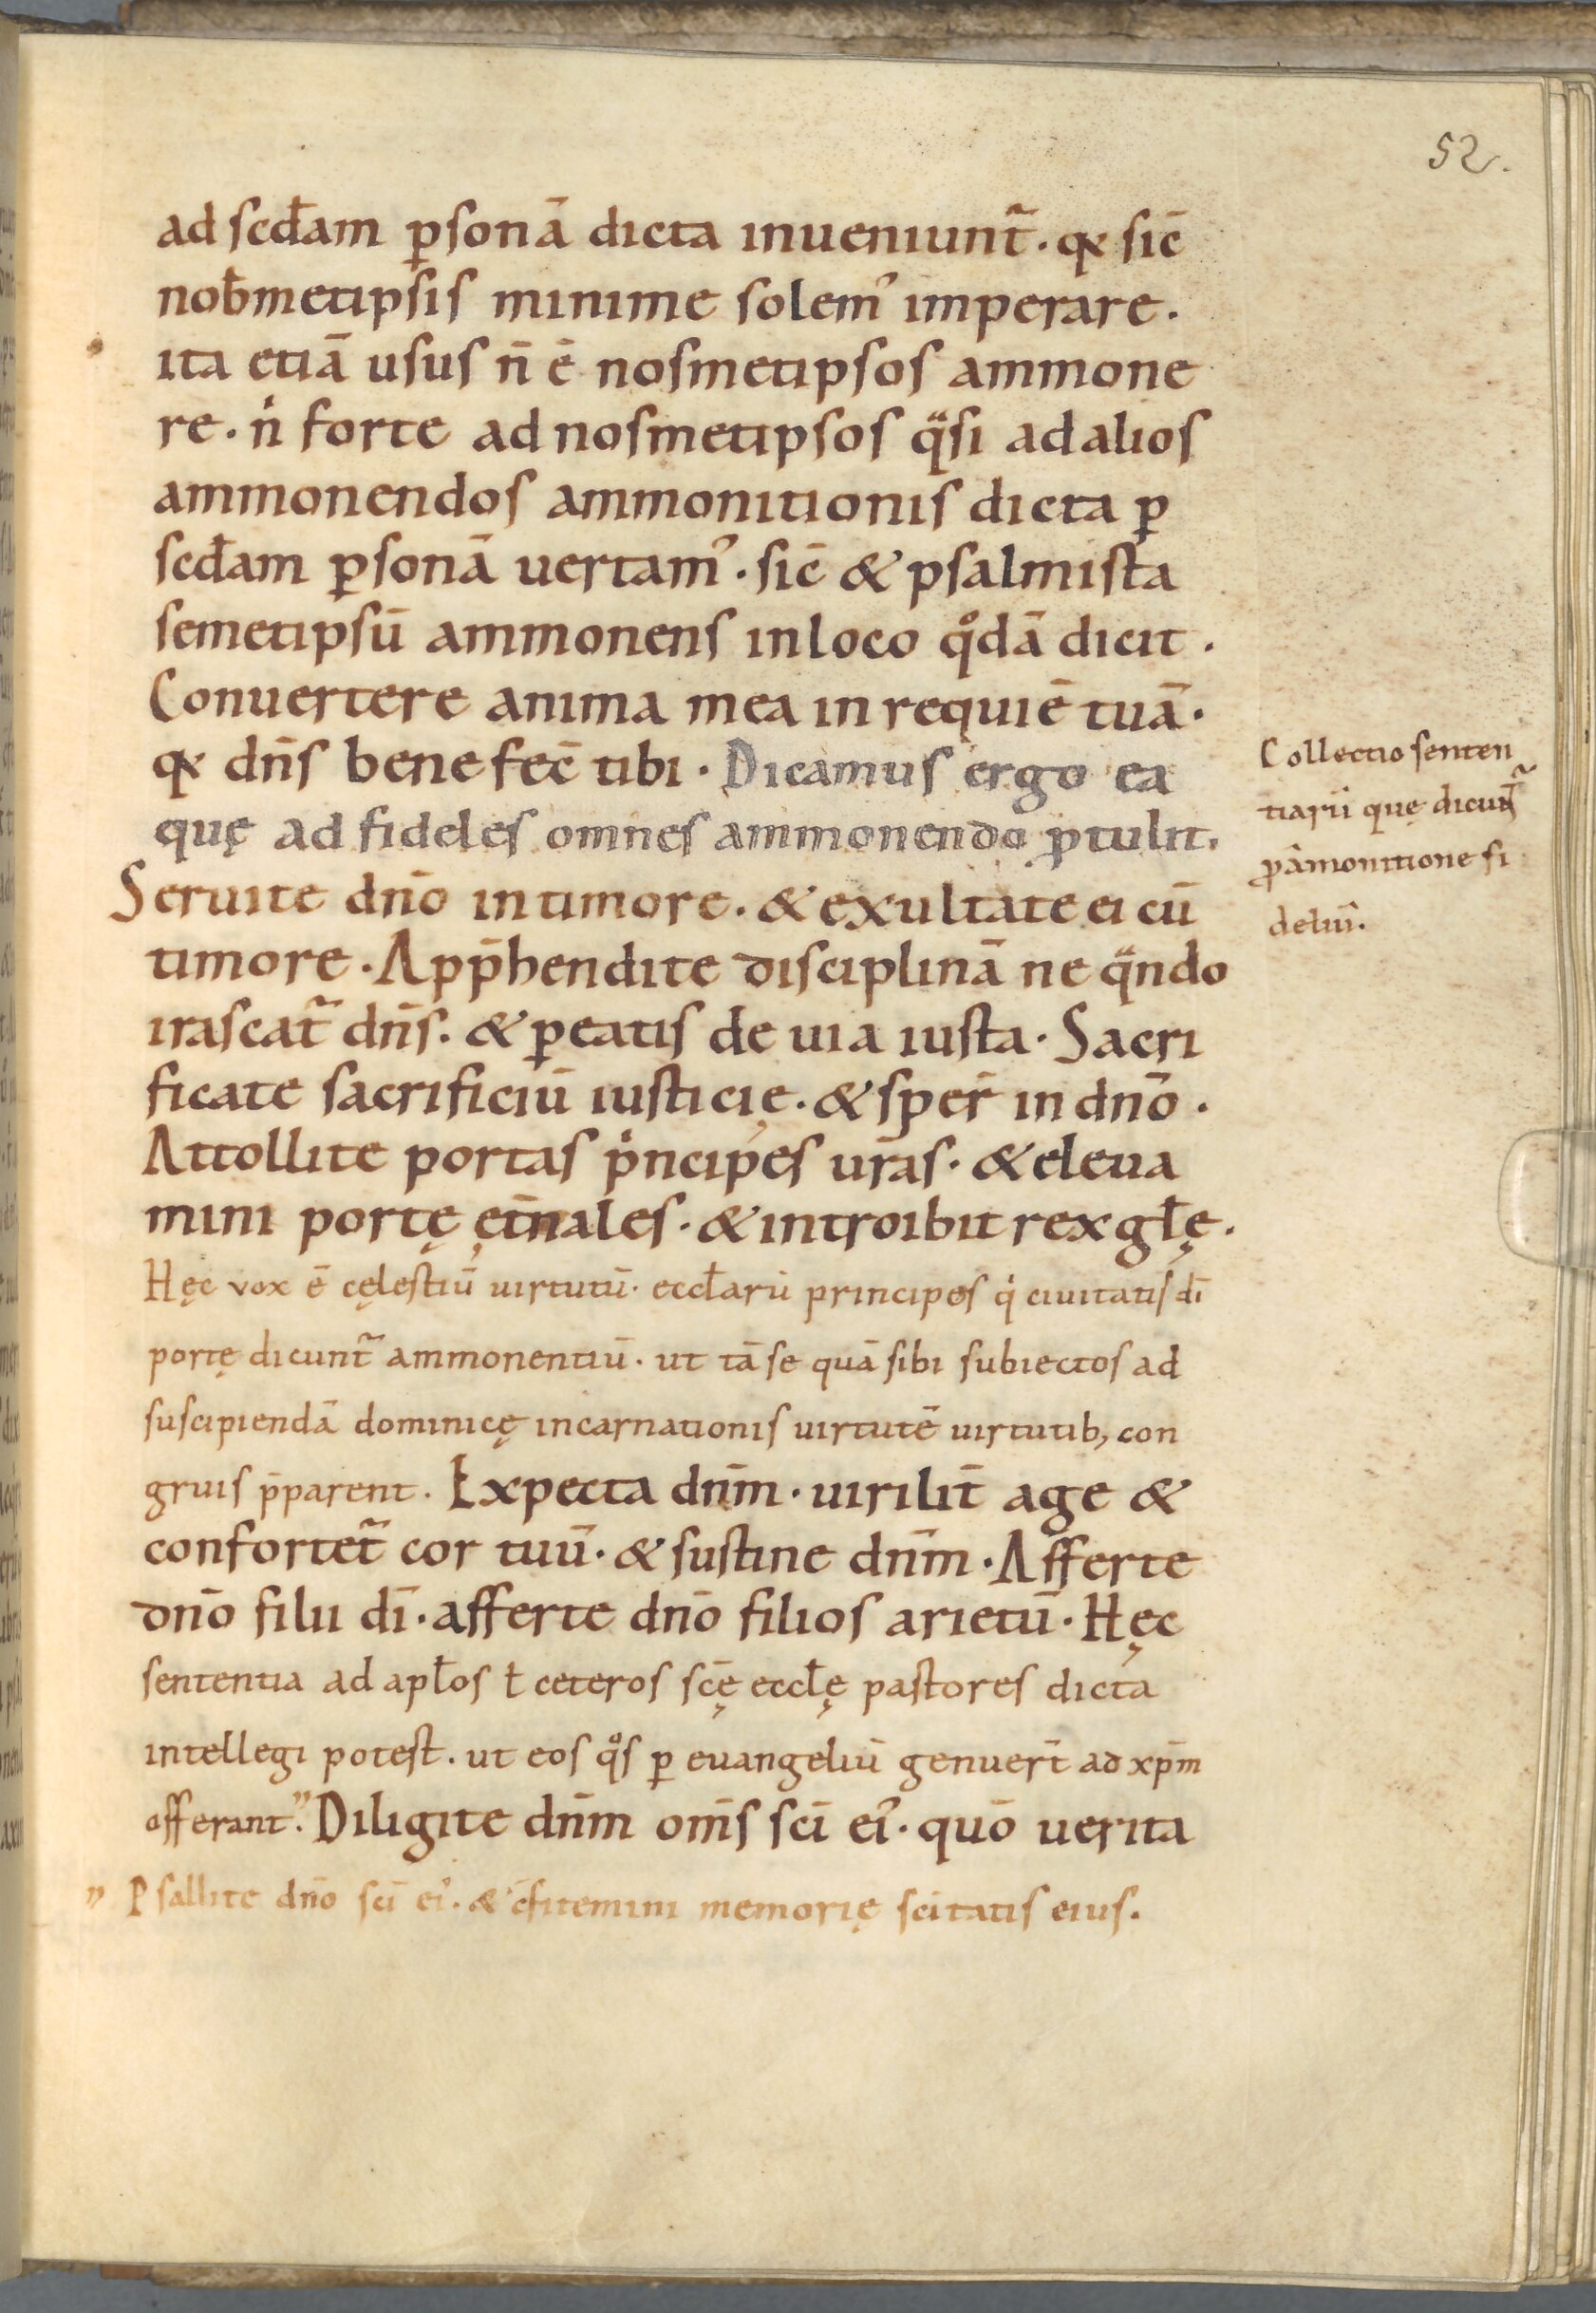 52.
ad scđam ꝑsonā dicta inueniunt᷑. qꝛ sic̄
nob̄metipsis minime solem᷒ imperare.
ita etiā usus n̄ ē nosmetipsos ammone
re. nͥ forte ad nosmetipsos qͣsi ad alios
ammonendos ammonitionis dicta ꝑ
scđam ꝑsonā uertam᷒. sic̄ & psalmista
semetipsū ammonens in loco qͦdā dicit.
Conuertere anima mea in requiē tuā.
qꝛ dn̄s bene fec̄ tibi. Dicamus ergo ea
quę ad fideles omnes ammonendo ꝓtulit.
Seruite dn̄o in timore. & exultate ei cū
timore. App̄hendite disciplinā ne qͣndo
irascat᷑ dn̄s. & ꝑeatis de uia iusta. Sacri
ficate sacrificiū iusticię. & sper̄ in dn̄o.
Attollite portas pͥncipes ur̄as. & eleua
mini portę ęt̄nales. & introibit rex gl̄ę.
Hęc vox ē cęlestiū uirtutū. eccl̄arū principes qͥ ciuitatis dī
portę dicunt᷑ ammonentiū. ut tā se quā sibi subiectos ad
suscipiendā dominicę incarnationis uirtutē uirtutib; con
gruis p̄parent. Expecta dn̄m. uirilit̄ age &
confortet᷑ cor tuū. & sustine dn̄m. Afferte
dn̄o filii dī. afferte dn̄o filios arietū. Hęc
sententia ad apl̄os ł ceteros sc̄ę eccl̄ę pastores dicta
intellegi potest. ut eos qͦs ꝑ euangeliū genuer̄t ad xp̄m
offerant." Diligite dn̄m om̄s sc̄i ei᷒. quō uerita
" Psallite dn̄o sc̄i ei᷒. & c̄fitemini memorię sc̄itatis eius.
Collectio senten
tiarū quę dicunt᷑
ꝓ āmonitione fi
deliū.